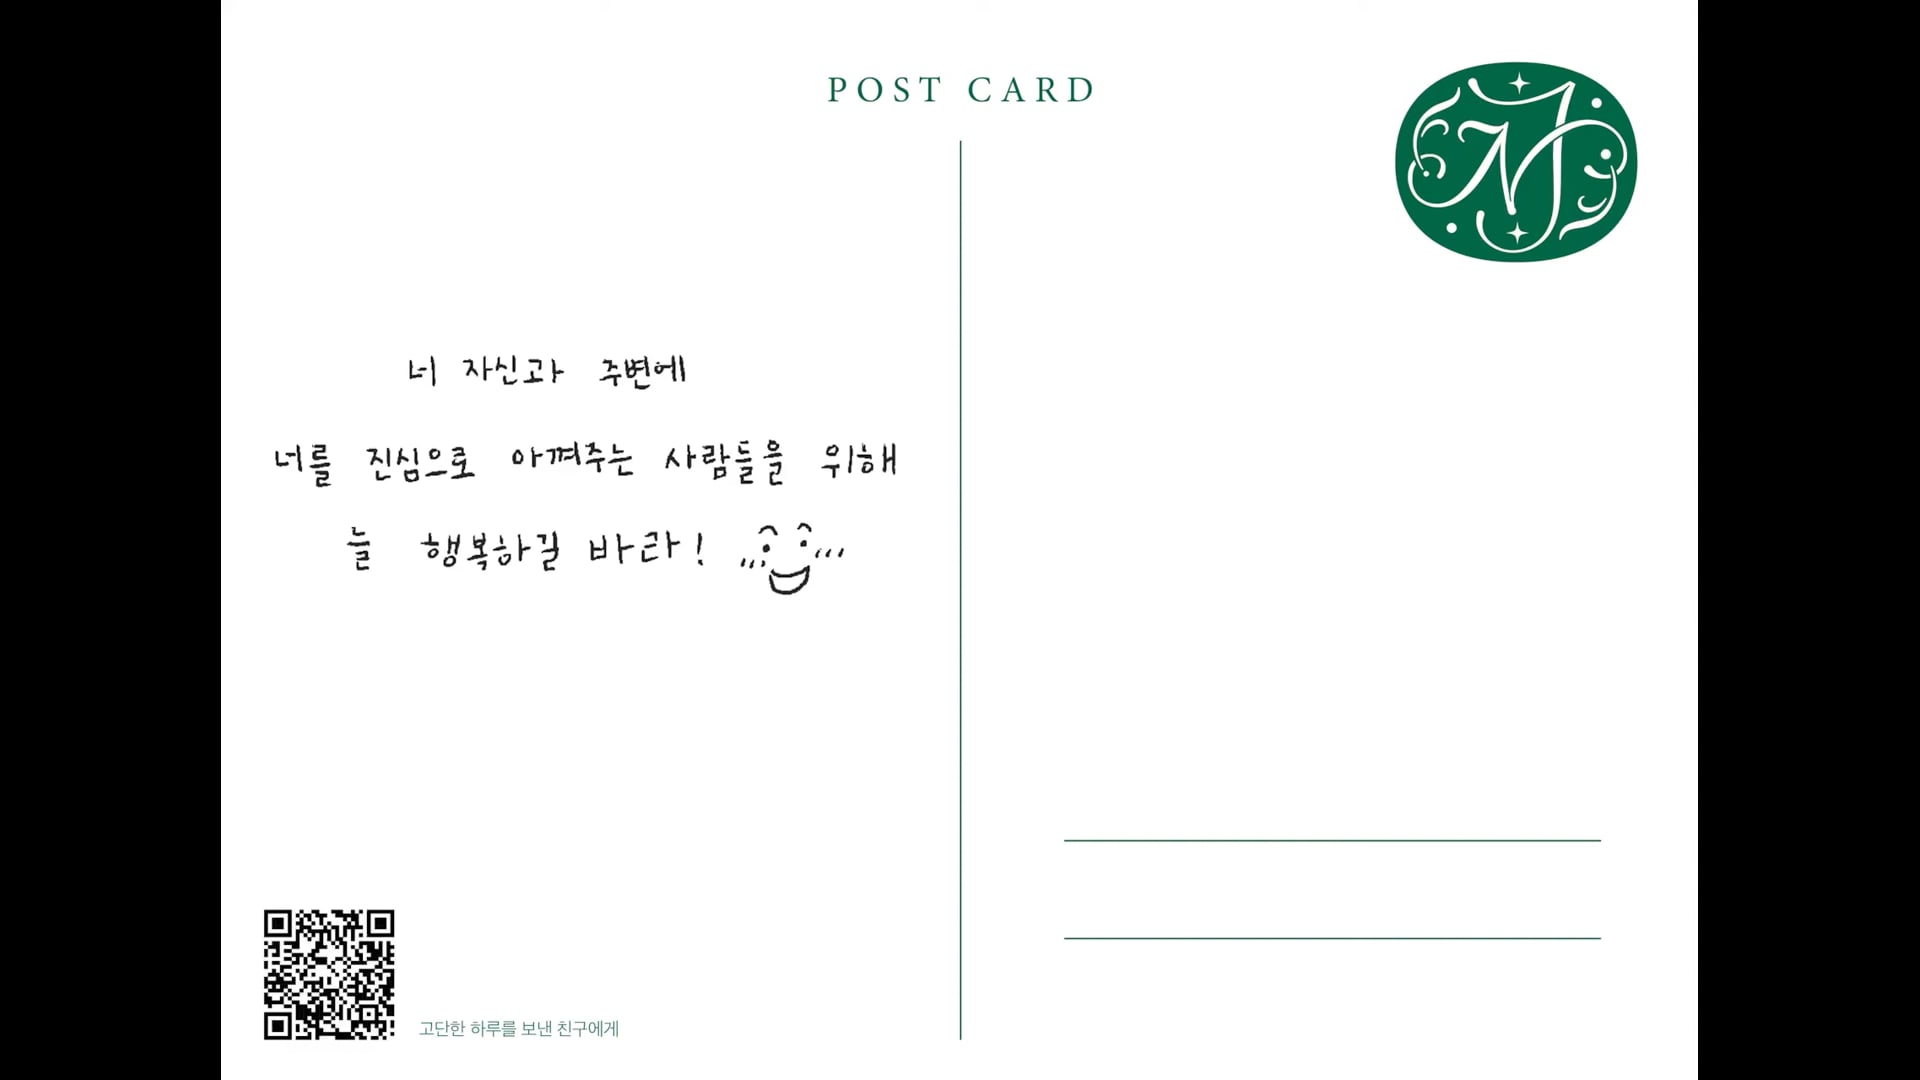 POST CARD
너 자신과 주변에
너를 진심으로 아껴주는 사람들을 위해
늘 행복하길 바라!
고단한 하루를 보낸 친구에게